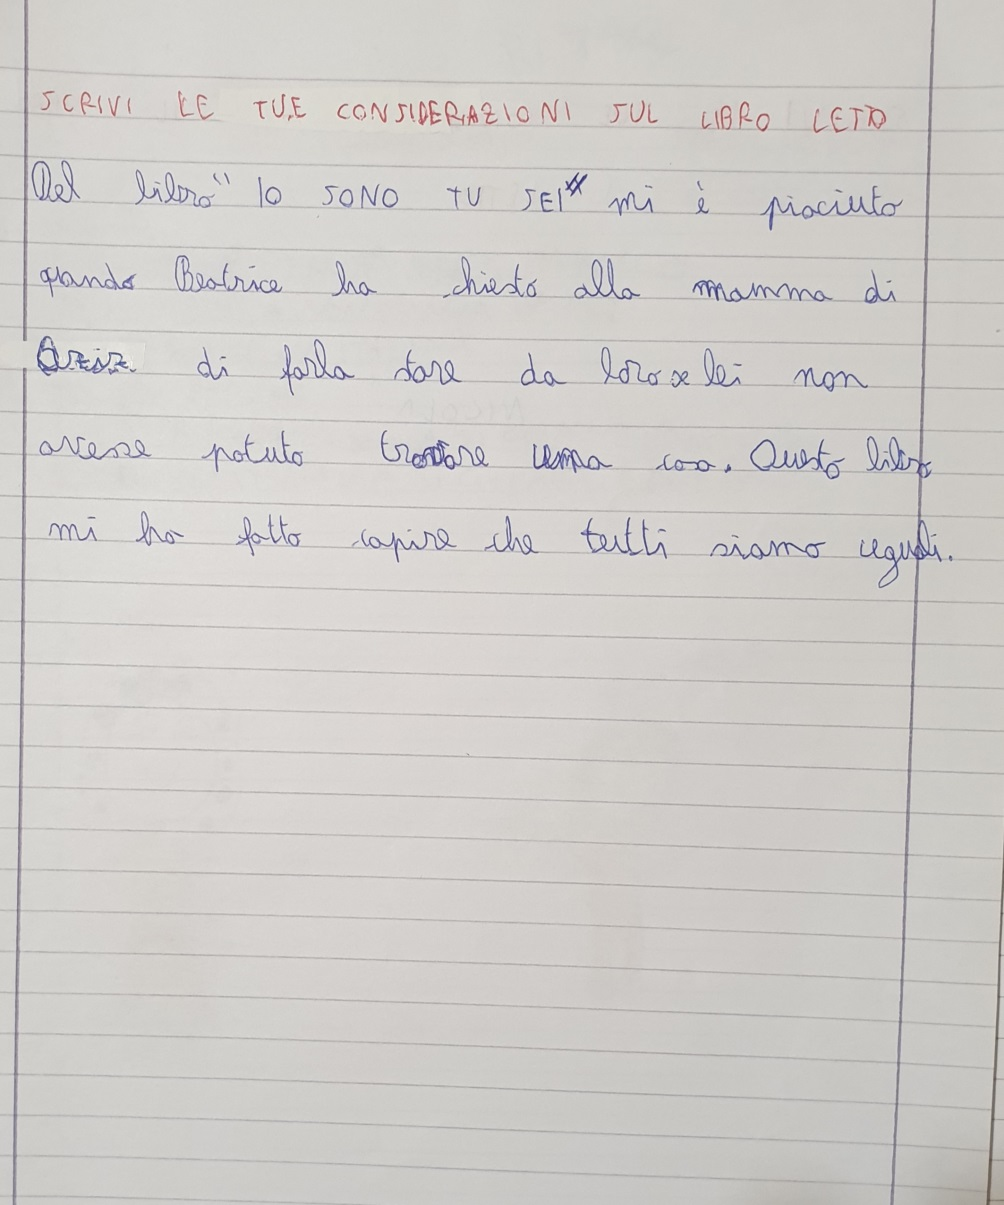 SCRIVI LE TUE CONSIDERAZIONI SUL LIBRO LETTO
Del libro "IO SONO TU SEI" mi è piaciuto
quando Beatrice ha chiesto alla mamma di
Aziz di farla stare da loro se lei non
avesse potuto trovare una casa. Questo libro
mi ha fatto capire che tutti siamo uguali.